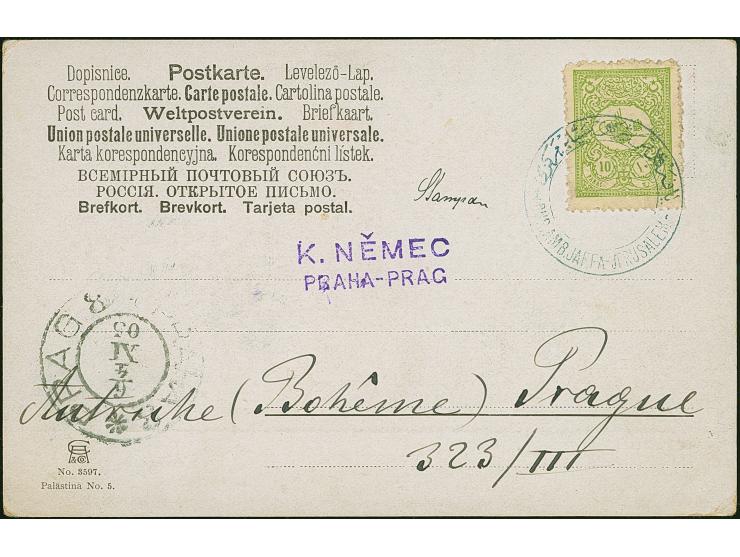 Dopisnice. Postkarte. Levelező-Lap.
Correspondenzkarte. Carte postale. Cartolina postale.
Post card. Weltpostverein. Briefkaart.
Union postale universelle. Unione postale universale.
Karta korespondencyjna. Korespondenční lístek.
ВСЕМІРНЫЙ ПОЧТОВЫЙ СОЮЗЪ.
РОССІЯ. ОТКРЫТОЕ ПИСЬМО.
Brefkort. Brevkort. Tarjeta postal.
10 ١٠
AMB. JAFFA-JERUSALEM
Stampan
K. NĚMEC
PRAHA-PRAG
PRAG
XI
05
Autriche (Bohême) Prague
323/III
No. 3597.
Palästina No. 5.